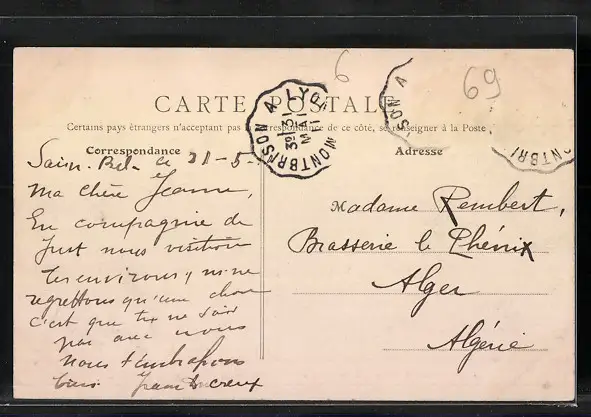 6
69
CARTE POSTALE
Certains pays étrangers n'acceptant pas la correspondance de ce côté, se renseigner à la Poste
MONTBRISON A LYON
3° 31
MAI
11
SON A
MONTBRI
Correspondance
Adresse
Sain-Bel- le 21-5-
Ma chère Jeanne,
En compagnie de
Just nous visitons
les environs, nous ne
regrettons qu'une chose
c'est que tu ne sois
pas avec nous
Nous t'embrassons
tous
Madame Rembert,
Brasserie le Phénix
Alger
Algérie